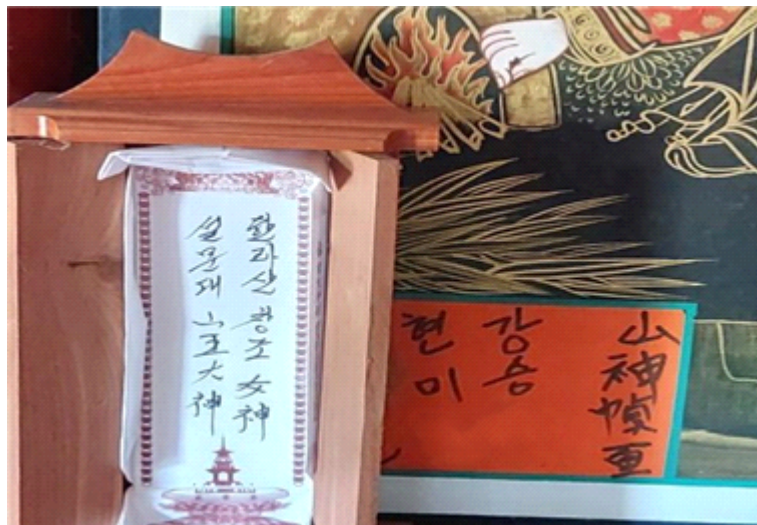 한라산 창조 女神
설문대 山王大神
山神幀画
강승
현미